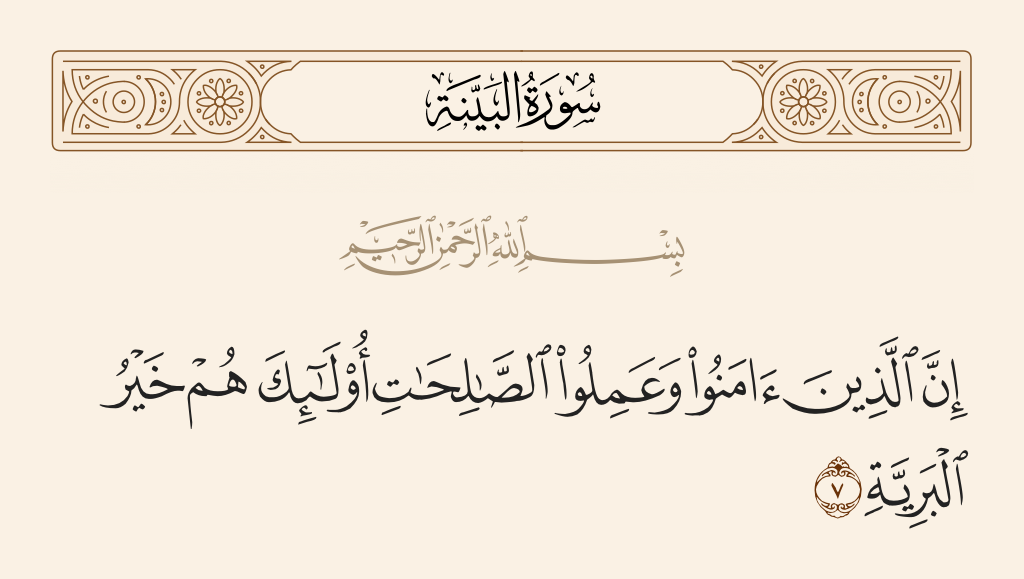 سُورَةُ البَيِّنَةِ
بِسْمِ ٱللَّهِ ٱلرَّحْمَٰنِ ٱلرَّحِيمِ
إِنَّ ٱلَّذِينَ ءَامَنُوا۟ وَعَمِلُوا۟ ٱلصَّـٰلِحَـٰتِ أُو۟لَـٰٓئِكَ هُمْ خَيْرُ
ٱلْبَرِيَّةِ ٧